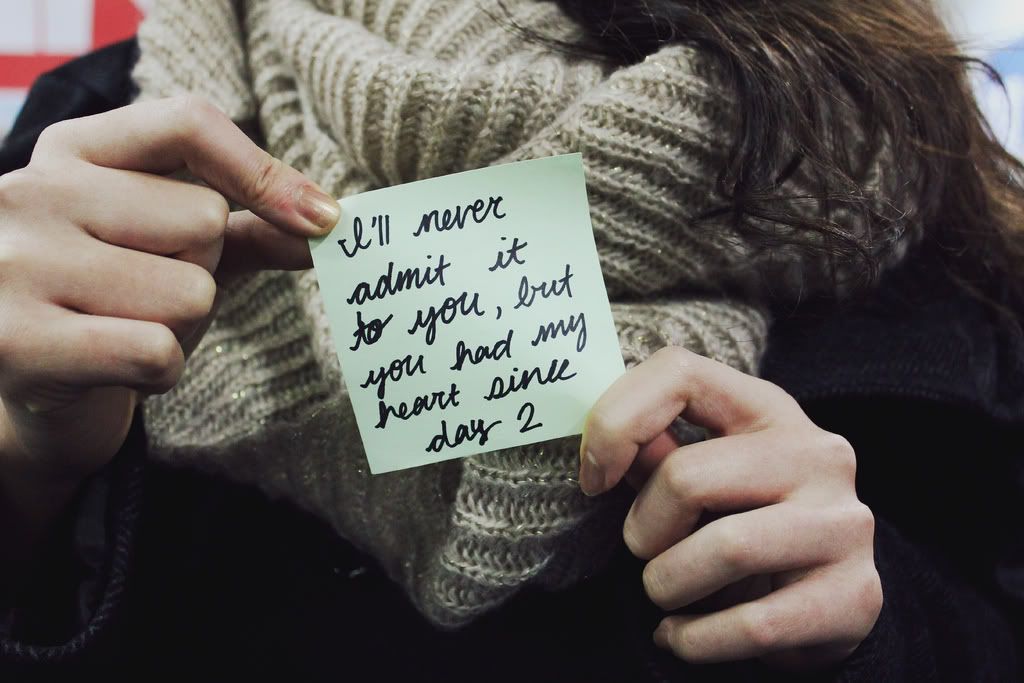 I'll never
admit it
to you, but
you had my
heart since
day 2